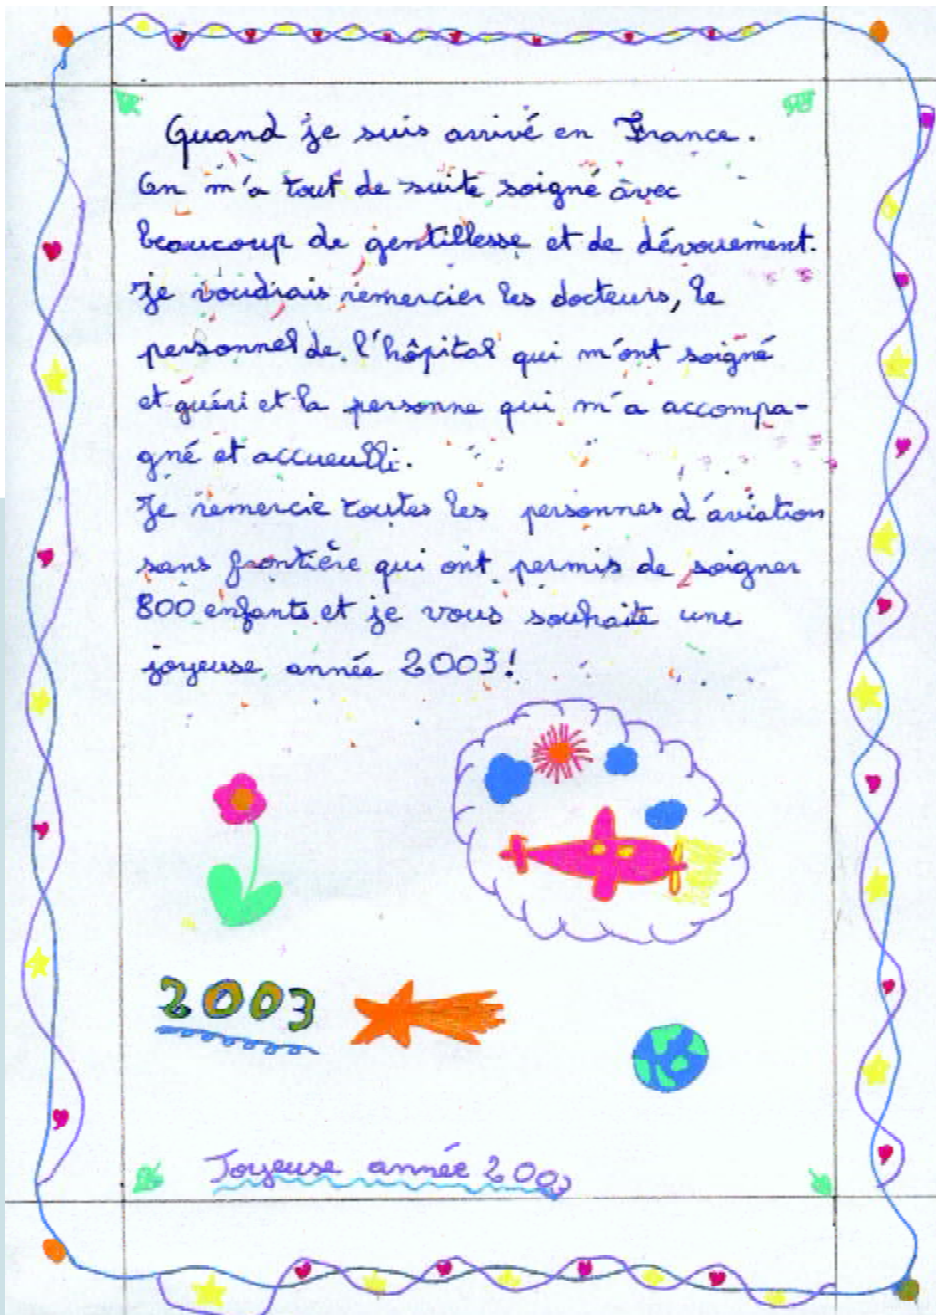 Quand je suis arrivé en France.
On m'a tout de suite soigné avec
beaucoup de gentillesse et de dévouement.
Je voudrais remercier les docteurs, le
personnel de l'hôpital qui m'ont soigné
et guéri et la personne qui m'a accompa-
gné et accueulli.
Je remercie toutes les personnes d'aviation
sans frontière qui ont permis de soigner
800 enfants et je vous souhaite une
joyeuse année 2003!
2003
Joyeuse année 2003